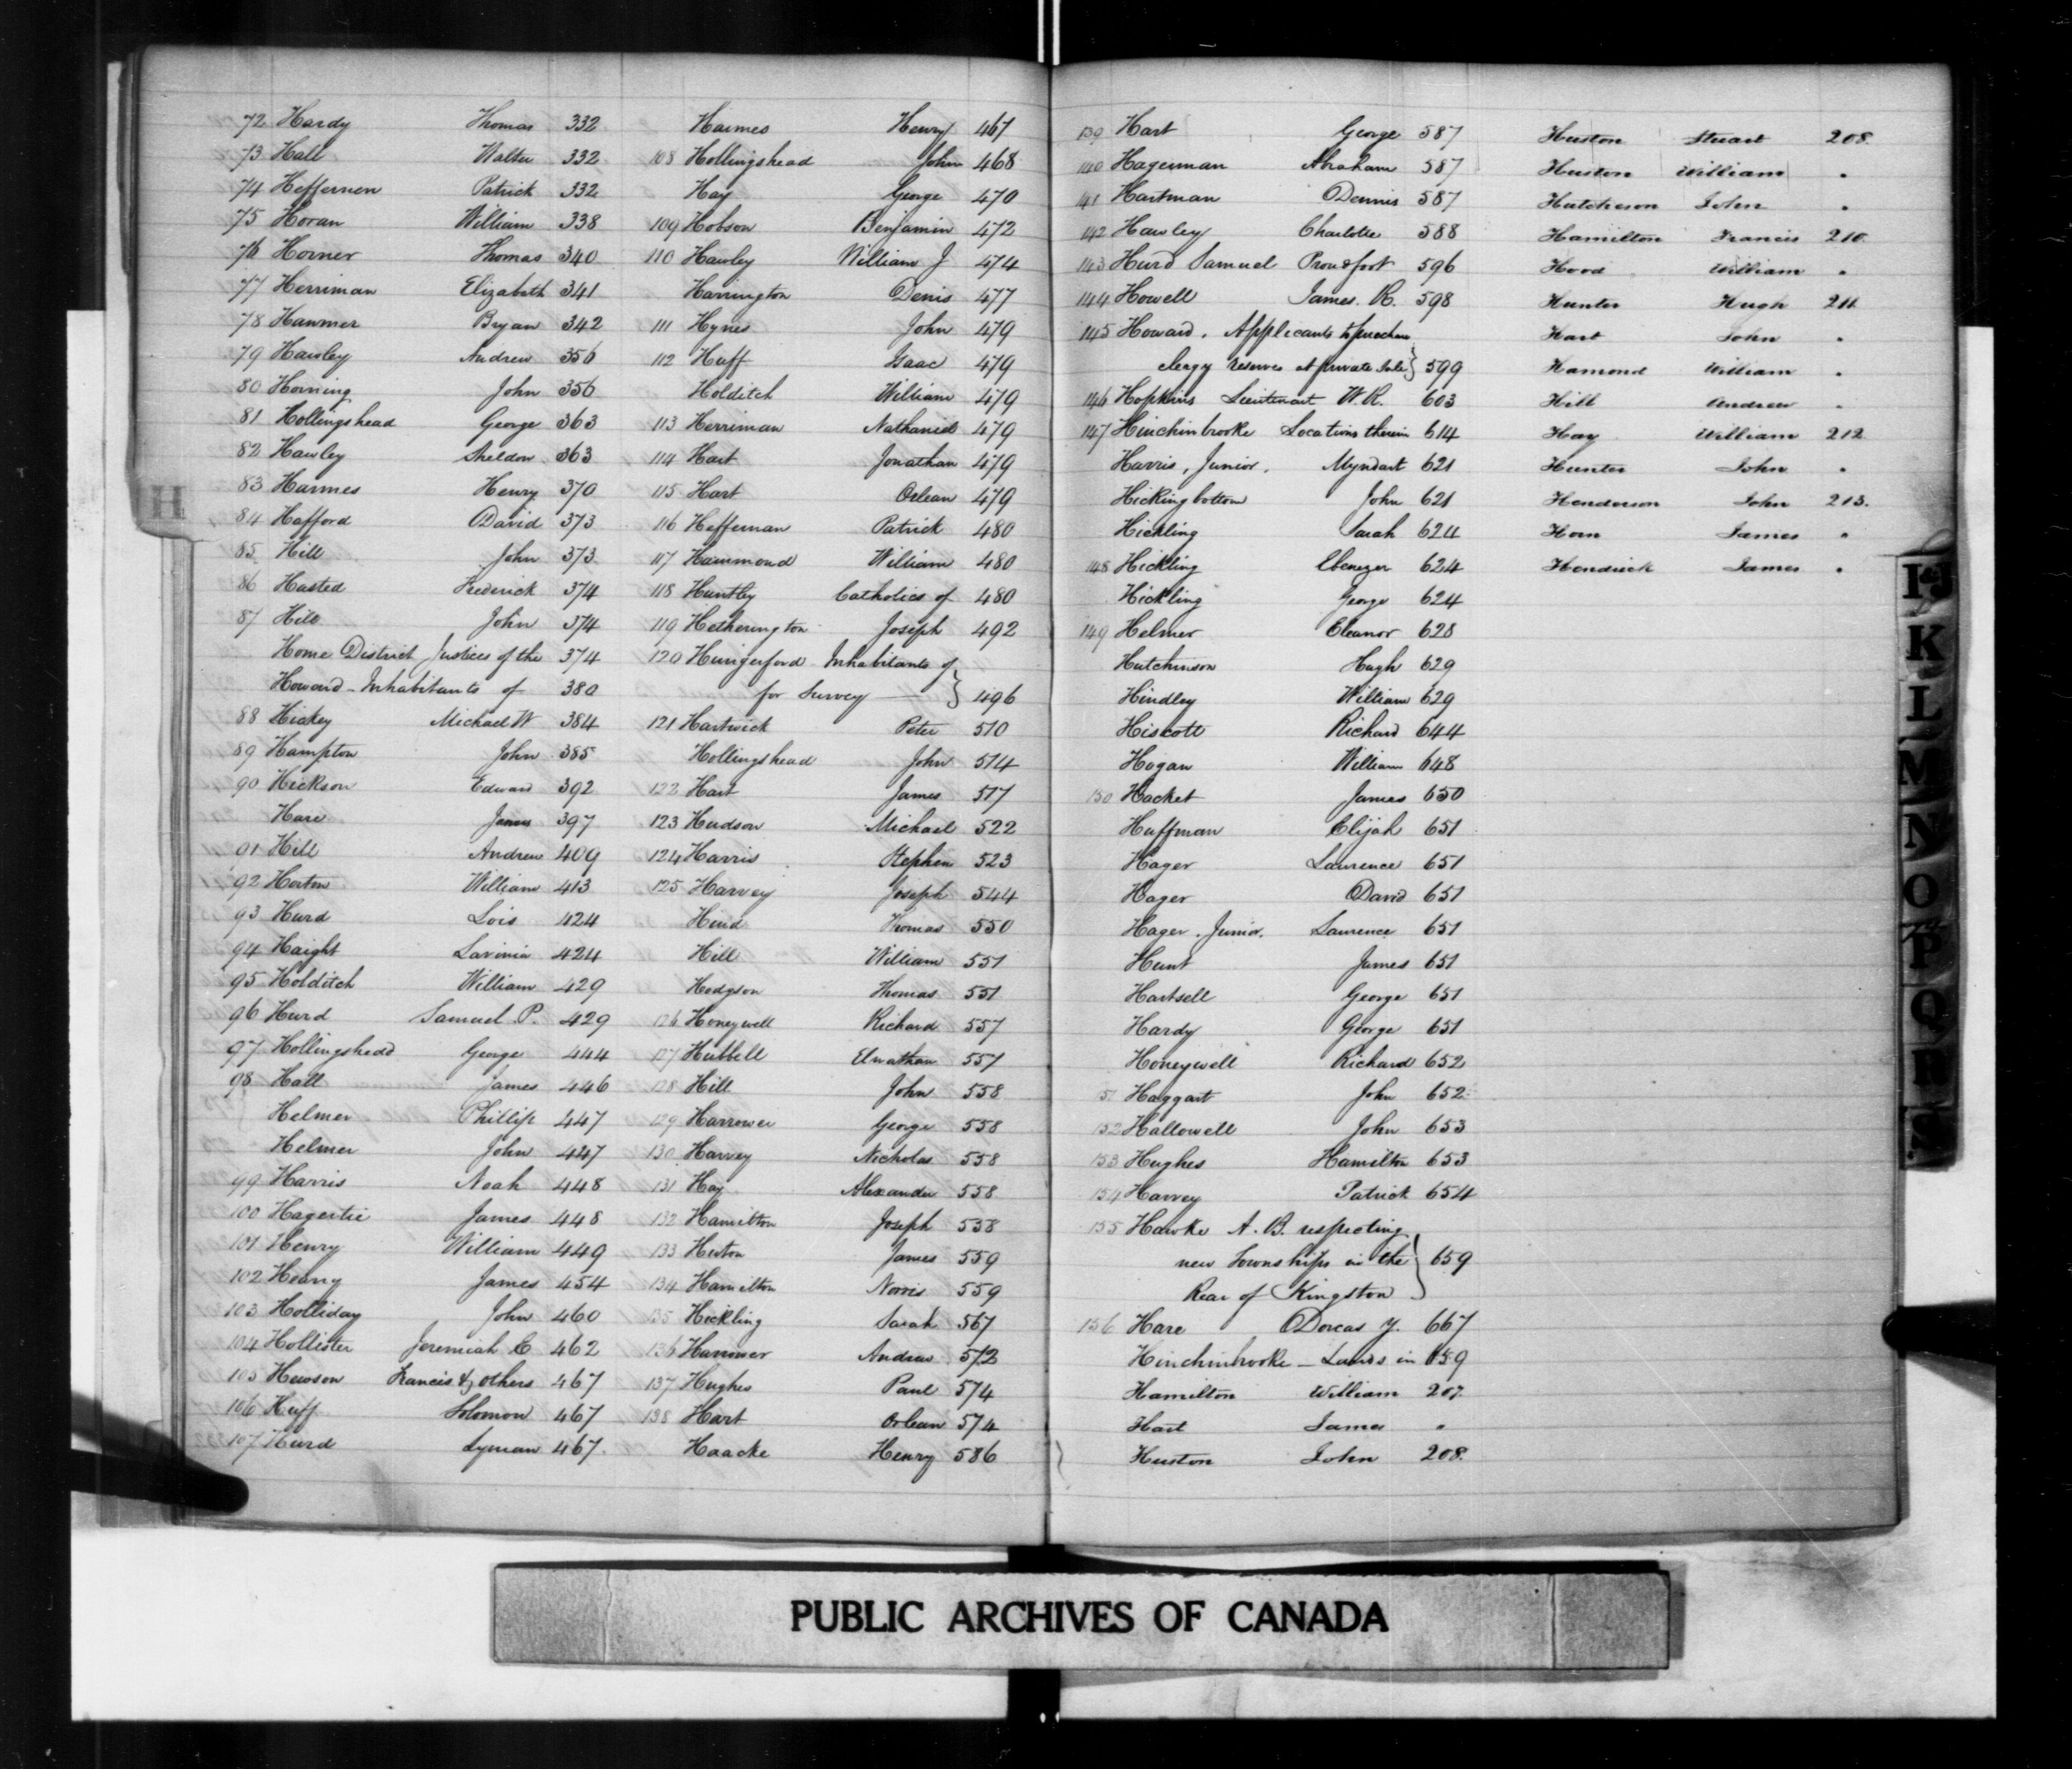 72 Hardy Thomas 332
73 Hall Walter 332
74 Heffernen Patrick 332
75 Horan William 338
76 Horner Thomas 340
77 Herriman Elizabeth 341
78 Hanmer Bryan 342
79 Hawley Andrew 356
80 Horning John 356
81 Hollingshead George 363
82 Hawley Sheldon 363
83 Harmes Henry 370
84 Hafford David 373
85 Hill John 373
86 Hasted Frederick 374
87 Hill John 374
Home District Justices of the 374
Howard - Inhabitants of 380
88 Hickey Michael W 384
89 Hampton John 385
90 Hickson Edward 392
Hare James 397
91 Hill Andrew 409
92 Horton William 413
93 Hurd Lois 424
94 Haight Lavinia 424
95 Holditch William 429
96 Hurd Samuel P. 429
97 Hollingshead George 444
98 Hall James 446
Helmer Phillip 447
Helmer John 447
99 Harris Noah 448
100 Hagertie James 448
101 Henry William 449
102 James 454
103 Holliday John 460
104 Hollister Jeremiah C 462
105 Hewson Francis & others 467
106 Huff Solomon 467
107 Hurd Lyman 467.
Haimes Henry 467
108 Hollingshead John 468
Hay George 470
109 Hobson Benjamin 472
110 Hawley William J 474
Harrington Denis 477
111 Hynes John 479
112 Huff Isaac 479
Holditch William 479
113 Herriman Nathaniel 479
114 Hart Jonathan 479
115 Hart Orlean 479
116 Heffernan Patrick 480
117 Hammond William 480
118 Huntley Catholics of 480
119 Hetherington Joseph 492
120 Hungerford Inhabitants of
for Survey } 496
121 Hartwick Peter 510
Hollingshead John 514
122 Hart James 517
123 Hudson Michael 522
124 Harris Stephen 523
125 Harvey Joseph 544
Hind Thomas 550
Hill William 551
Hodgson Thomas 551
126 Honeywell Richard 557
127 Hubbell Elnathan 557
128 Hill John 558
129 Harrower George 558
130 Harvey Nicholas 558
131 Hay Alexander 558
132 Hamilton Joseph 558
133 Huton James 559
134 Hamilton Norris 559
135 Hickling Sarah 567
136 Harrower Andrew 572
137 Hughes Paul 574
138 Hart Orlean 574
Haacke Henry 586
139 Hart George 587
140 Hagerman Abraham 587
141 Hartman Dennis 587
142 Hawley Charlotte 588
143 Hurd Samuel Proudfoot 596
144 Howell James. R. 598
145 Howard. Applicants to purchase
clergy reserves at private Sale } 599
146 Hopkins Lieutenant W. R. 603
147 Hinchinbrooke Locations therein 614
Harris, Junior. Myndart 621
Hickingbottom John 621
Hickling Sarah 624
148 Hickling Ebenezer 624
Hickling George 624
149 Helmer Eleanor 628
Hutchinson Hugh 629
Hindley William 629
Hiscott Richard 644
Hogan William 648
150 Hacket James 650
Huffman Elijah 651
Hager Laurence 651
Hager David 651
Hager. Junior. Laurence 651
Hunt James 651
Hartsell George 651
Hardy George 651
Honeywell Richard 652
51 Haggart John 652
152 Hallowell John 653
153 Hughes Hamilton 653
154 Harvey Patrick 654
155 Hawke A. B. respecting
new Townships in the } 659
Rear of Kingston
156 Hare Dorcas Y. 667
Hinchinbrooke - Lands in 659
Hamilton William 207.
Hart James "
Huston John 208.
Huston Stuart 208.
Huston William "
Hutcheson John "
Hamilton Francis 210.
Hood William "
Hunter Hugh 211.
Hart John "
Hamond William "
Hill Andrew "
Hay William 212
Hunter John "
Henderson John 213.
Horn James "
Hendrick James "
H
IJ
K
L
M
N
O
P
Q
R
PUBLIC ARCHIVES OF CANADA